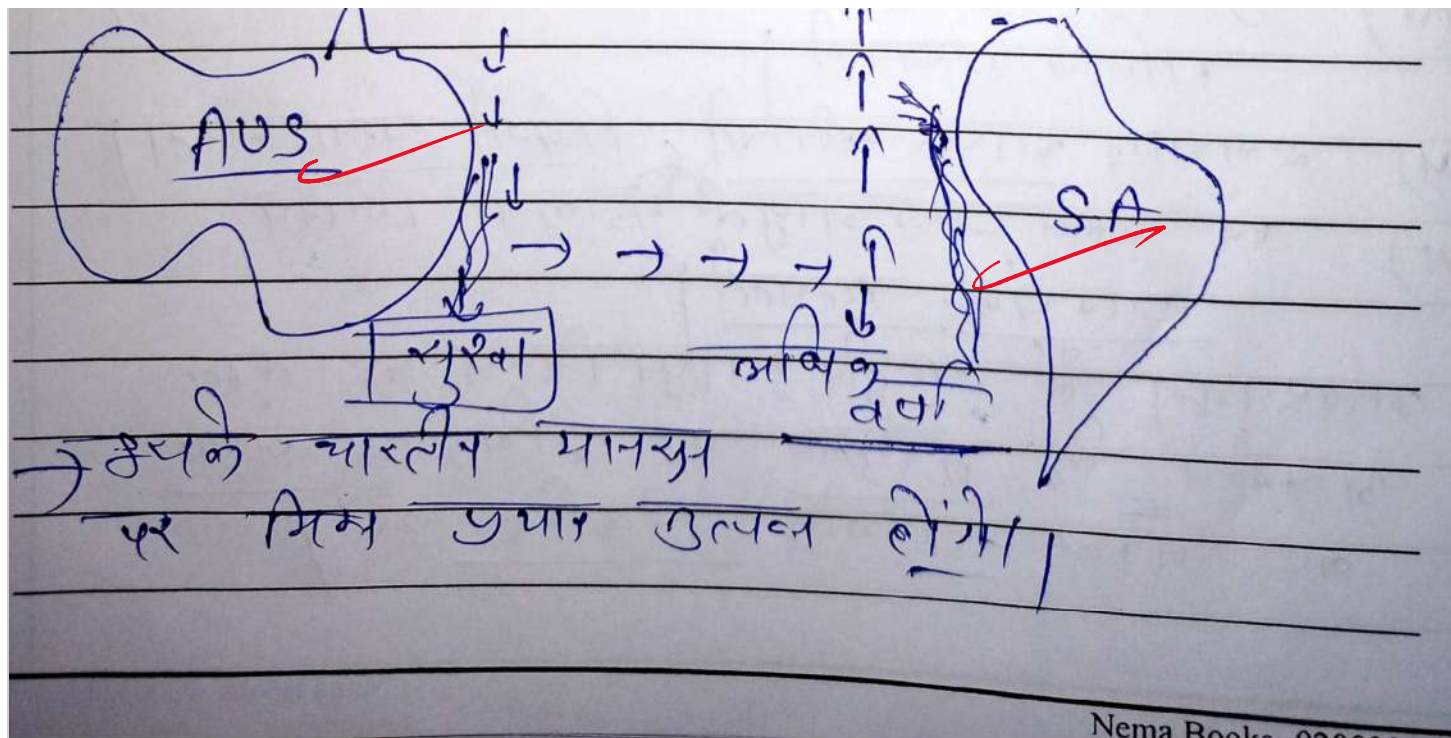 AUS
SA
सुखा
अधिक
वर्षा
→ इसके भारतीय मानसून
पर निम्न प्रभाव उत्पन्न होंगे।
Nema Books